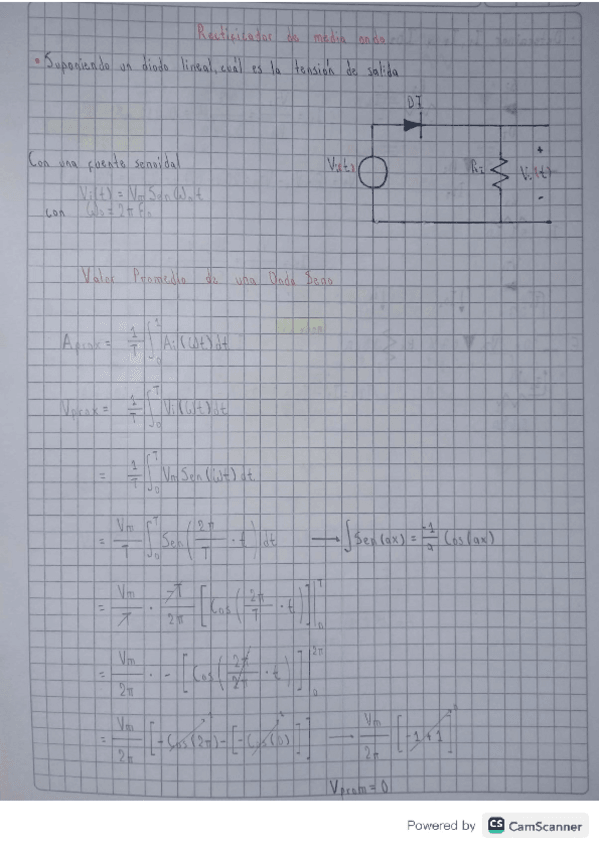 Rectificador de media onda
• Suponiendo un diodo lineal, cuál es la tensión de salida
D1
Con una fuente senoidal
Vi(t)
+
Vi(t) = Vm Sen ω₀t
con ω₀ = 2π F₀
-
Valor Promedio de una Onda Seno
= 1/T ∫₀ᵀ Ai(ωt)dt
= 1/T ∫₀ᵀ Vi(ωt)dt
= 1/T ∫₀ᵀ Vm Sen(ωt)dt
= Vm/T ∫₀ᵀ Sen(2π/T · t)dt → ∫Sen(ax) = -1/a Cos(ax)
= Vm/T · -T/2π [Cos(2π/T · t)]|₀ᵀ
= Vm/2π · -[Cos(2π/2π · t)]|₀^2π
= Vm/2π [-Cos(2π)-[-Cos(0)]] → Vm/2π [-1+1]
Vprom = 0
Powered by CS CamScanner